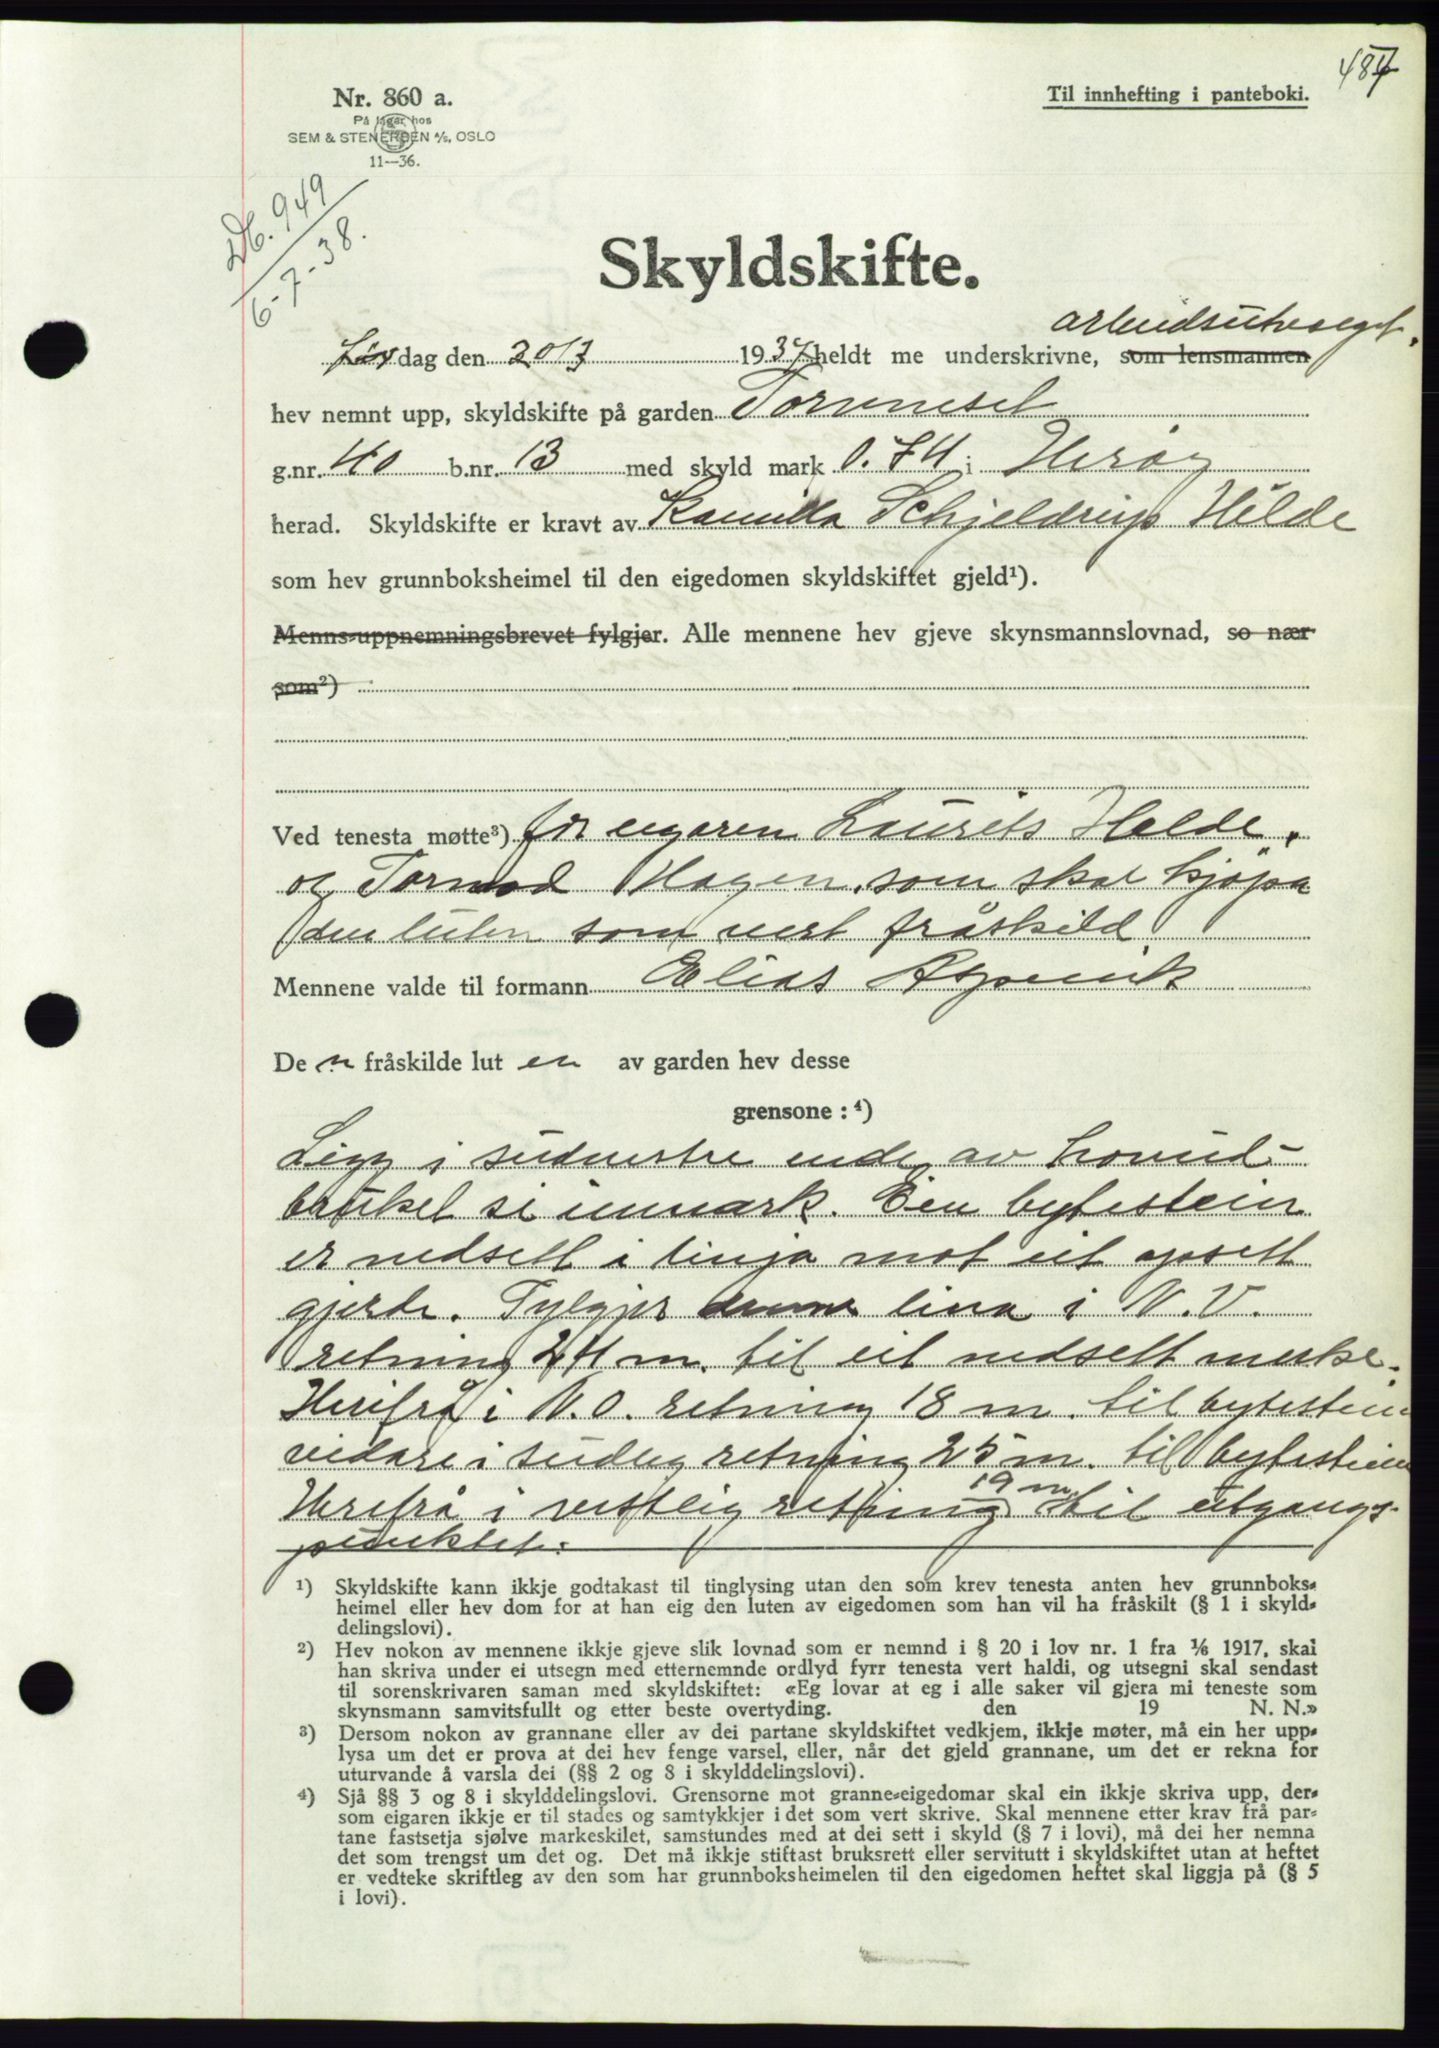 487
Nr. 860 a.
På lager hos
SEM & STENERSEN A/S, OSLO
11—36.
Til innhefting i panteboki.
Db. 949
6-7-38.
Skyldskifte.
arbeidsutvalget.
Lørdag den 20/3 1937 heldt me underskrivne, som lensmannen
hev nemnt upp, skyldskifte på garden Torvneset
g.nr. 40 b.nr. 13 med skyld mark 0.74 i Herøy
herad. Skyldskifte er kravt av Kamilla Schjeldrup Hilde
som hev grunnboksheimel til den eigedomen skyldskiftet gjeld¹).
Menns-uppnemningsbrevet fylgjer. Alle mennene hev gjeve skynsmannslovnad, so nær
som²)
Ved tenesta møtte³) for eigaren Laurits Hilde,
og Tormod Hagen, som skal kjøpa
den luten som vert fråskild
Mennene valde til formann Elias Aspevik
De n fråskilde lut en av garden hev desse
grensone : ⁴)
Ligg i sudvestre ende av hovud-
bruket si innmark. Ein bytestein
er nedsett i linja mot eit oppsett
gjerde. Fylgjer denne lina i N.V.
retning 24 m. til eit nedsett merke.
Herifrå i N.O. retning 18 m. til bytestein
vidare i sudleg retning 25 m. til bytestein
Herifrå i vestleg retning 19 m. til utgangs-
punktet.
1) Skyldskifte kann ikkje godtakast til tinglysing utan den som krev tenesta anten hev grunnboks-
heimel eller hev dom for at han eig den luten av eigedomen som han vil ha fråskilt (§ 1 i skyld-
delingslovi).
2) Hev nokon av mennene ikkje gjeve slik lovnad som er nemnd i § 20 i lov nr. 1 fra 1/6 1917, skal
han skriva under ei utsegn med etternemnde ordlyd fyrr tenesta vert haldi, og utsegni skal sendast
til sorenskrivaren saman med skyldskiftet: «Eg lovar at eg i alle saker vil gjera mi teneste som
skynsmann samvitsfullt og etter beste overtyding. den 19 N. N.»
3) Dersom nokon av grannane eller av dei partane skyldskiftet vedkjem, ikkje møter, må ein her upp-
lysa um det er prova at dei hev fenge varsel, eller, når det gjeld grannane, um det er rekna for
uturvande å varsla dei (§§ 2 og 8 i skylddelingslovi).
4) Sjå §§ 3 og 8 i skylddelingslovi. Grensorne mot granne-eigedomar skal ein ikkje skriva upp, der-
som eigaren ikkje er til stades og samtykkjer i det som vert skrive. Skal mennene etter krav frå par-
tane fastsetja sjølve markeskilet, samstundes med at dei sett i skyld (§ 7 i lovi), må dei her nemna
det som trengst um det og. Det må ikkje stiftast bruksrett eller servitutt i skyldskiftet utan at heftet
er vedteke skriftleg av den som har grunnboksheimelen til den eigedomen heftet skal liggja på (§ 5
i lovi).